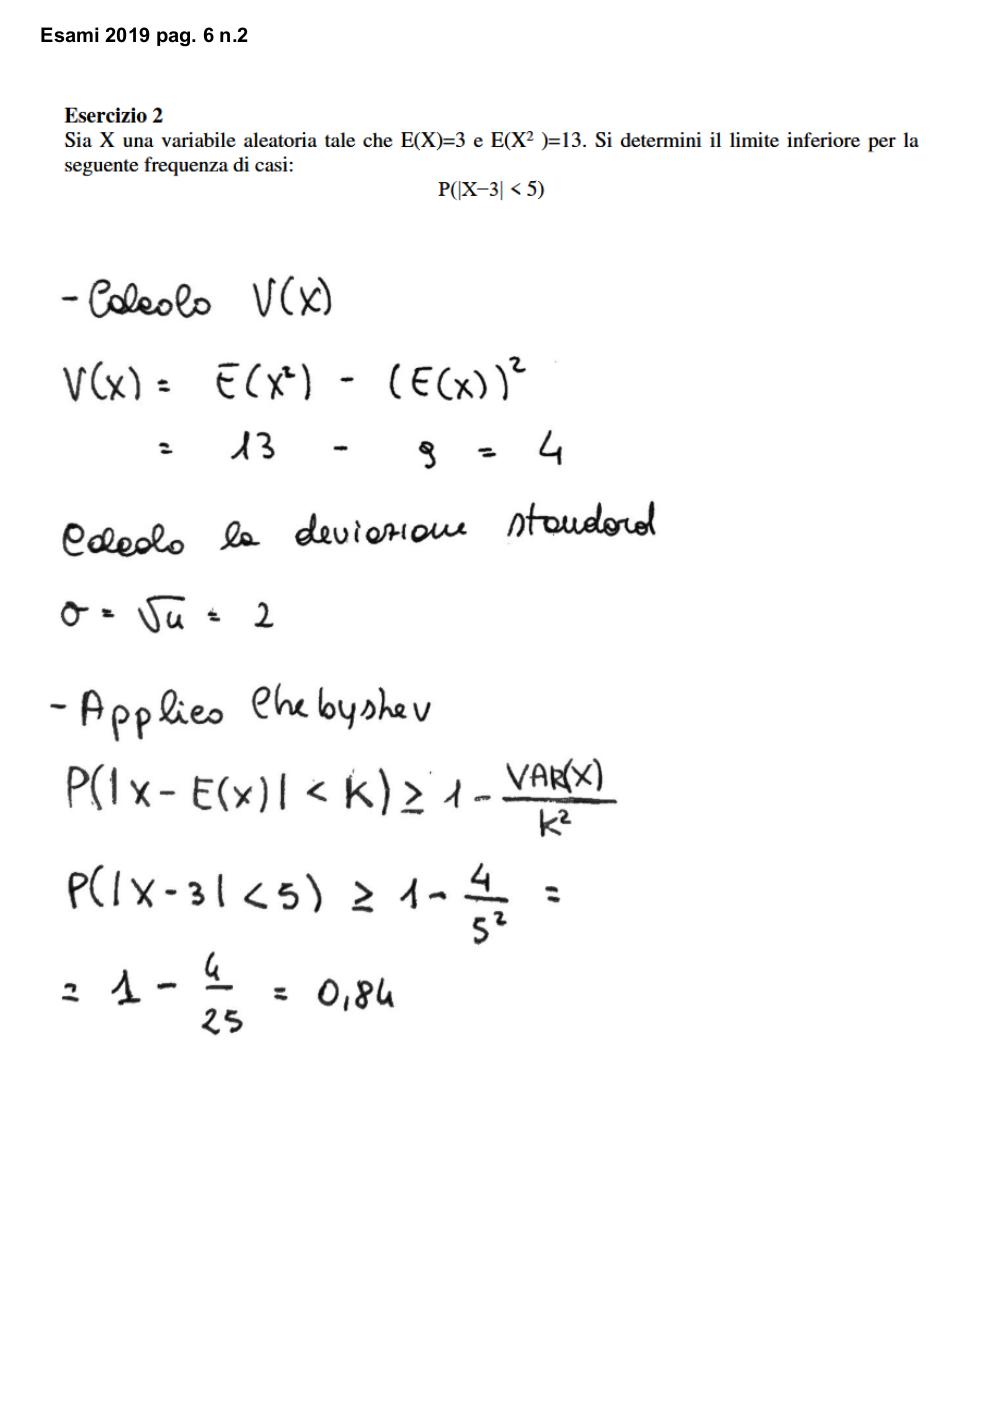 Esami 2019 pag. 6 n.2
Esercizio 2
Sia X una variabile aleatoria tale che E(X)=3 e E(X² )=13. Si determini il limite inferiore per la
seguente frequenza di casi:
P(|X−3| < 5)
- Calcolo V(X)
V(X) = E(X²) - (E(X))²
= 13 - 9 = 4
Calcolo la deviazione standard
σ = √4 = 2
- Applico Chebyshev
P(|X - E(X)| < K) ≥ 1 - VAR(X)/K²
P(|X - 3| < 5) ≥ 1 - 4/5² =
= 1 - 4/25 = 0,84